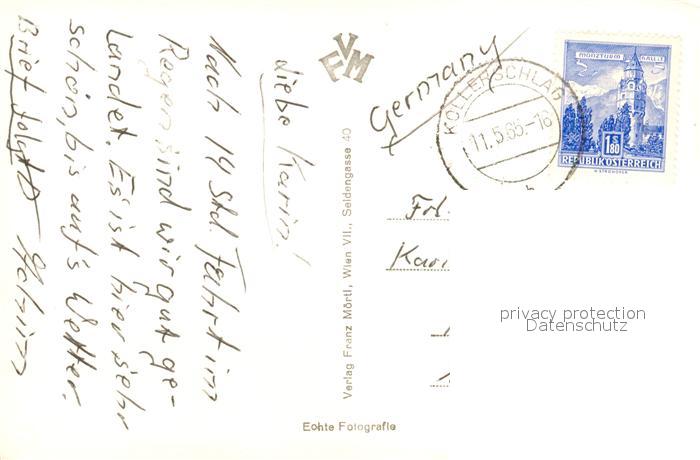 Liebe Karin!
Nach 14 Std Fahrt im
Regen sind wir gut ge-
landet. Es ist hier sehr
schön, bis auf's Wetter.
Brief folgt
FVM
Verlag Franz Mörtl, Wien VII., Seidengasse 40
Echte Fotografie
Germany
KOLLERSCHLAG
11.5.65.-18
MÜNZTURM HALL i.T
S 1.80
REPUBLIK ÖSTERREICH
Frl.
privacy protection
Datenschutz